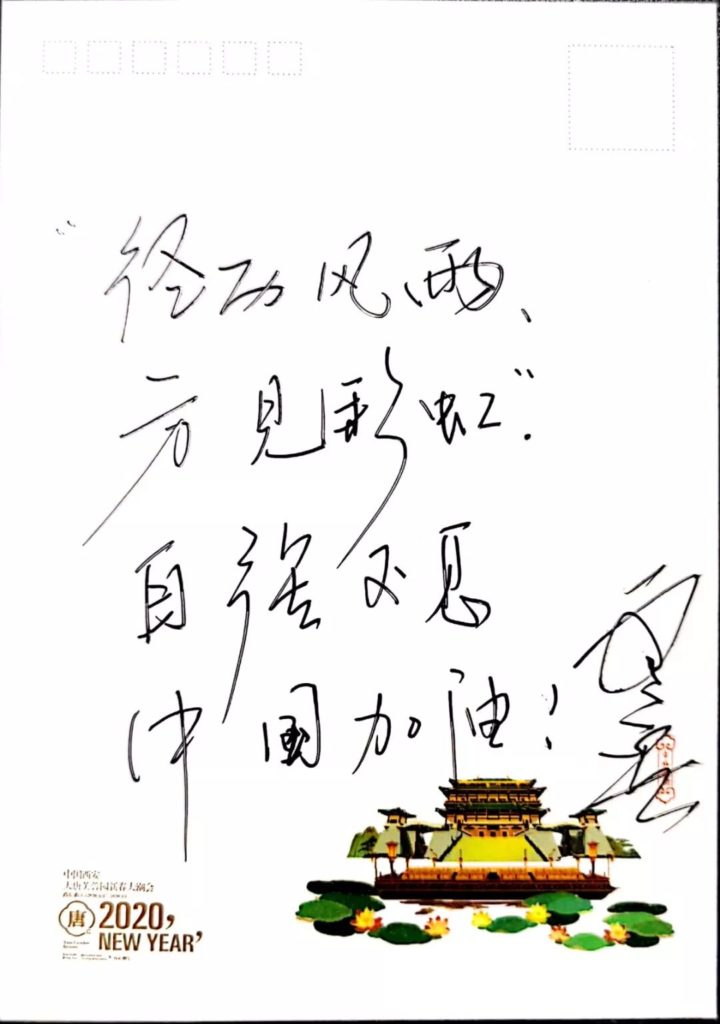 “径历风雨、
方见彩虹”.
自强不息
中国加油！
中国西安
大唐芙蓉园新春大潮会
唐
2020,
NEW YEAR’